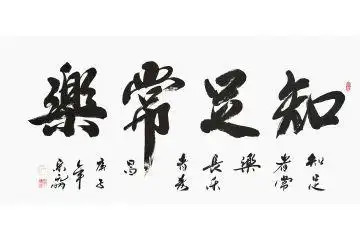 知足常樂
知足
者常
樂
長乐
者寿
昌
庚子
年